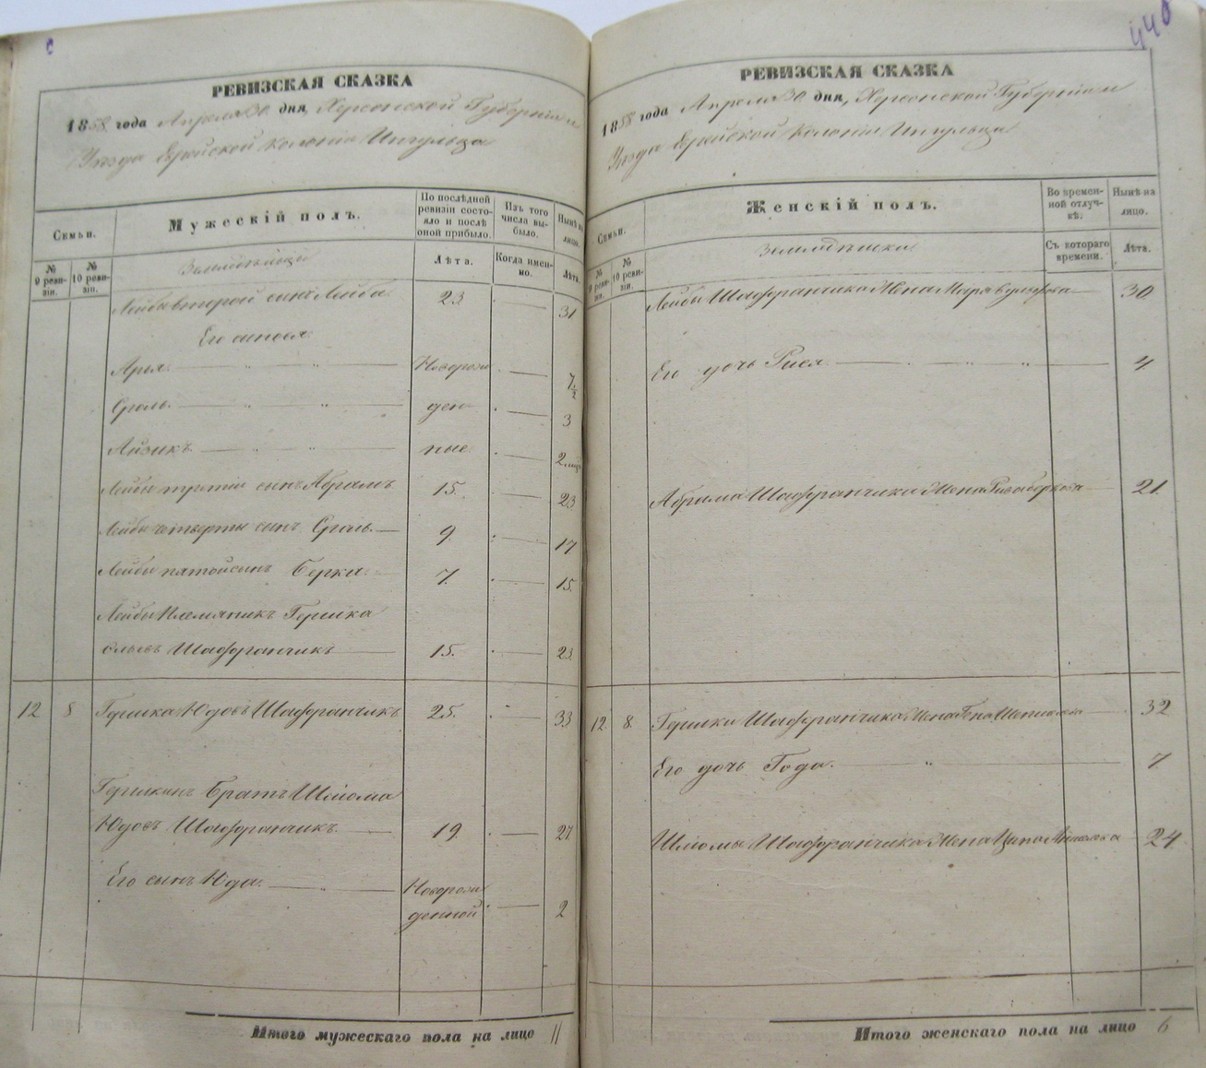 440
РЕВИЗСКАЯ СКАЗКА
1858 года Апреля 30 дня, Херсонской Губерніи и
Уезда Еврейской Колоніи Ингульца
Семьи.
Мужескій полъ.
По послѣдней ревизіи состояло и послѣ оной прибыло.
Изъ того числа выбыло.
Нынѣ на лицо.
№ 9 ревизіи.
№ 10 ревизіи.
Земледельцы
Лѣта.
Когда именно.
Лѣта.
Лейбы второй сынъ Лейба 23 31
Его сыновья
Арья Новорож 7½
Сроль ден 3
Айзикъ ные 2
Лейбы третій сынъ Абрамъ 15. 23
Лейбы четверты сынъ Сроль 9. 17
Лейбы пятой сынъ Берка 7. 15.
Лейбы Племяникъ Гершка
Шафранчикъ 15. 23
12 8 Гершка Юдовъ Шафранчикъ 25. 33
Гершкинъ Братъ Шлиома
Юдовъ Шафранчикъ 19. 27
Его сынъ Юда Новорож
денной 2
Итого мужескаго пола на лицо 11
РЕВИЗСКАЯ СКАЗКА
1858 года Апреля 30 дня, Херсонской Губерніи и
Уезда Еврейской Колоніи Ингульца
Семьи.
Женскій полъ.
Во временной отлучкѣ.
Нынѣ на лицо.
№ 9 ревизіи.
№ 10 ревизіи.
Земледелки
Съ котораго времени.
Лѣта.
Лейбы Шафранчика Жена 30
Его дочь Рися 4
Абрама Шафранчика Жена 21
12 8. Гершки Шафранчика Жена 32
Его дочь Года. 7
Шлиомы Шафранчика Жена Ципа 24
Итого женскаго пола на лицо 6